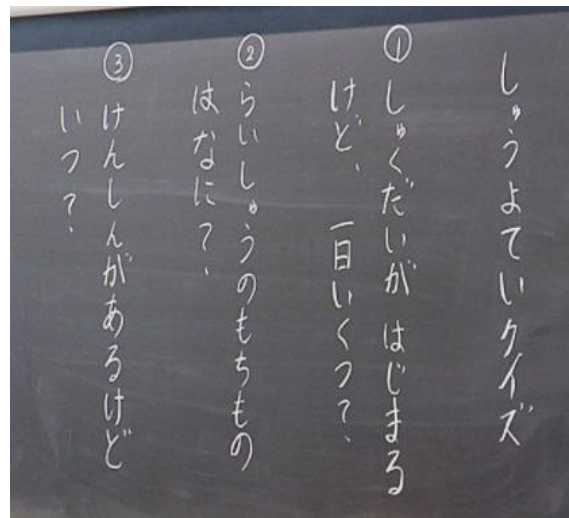 しゅうよていクイズ
①しゅくだいが はじまる
けど、一日いくつ?、
②らいしゅうのもちもの
はなに?、
③けんしんがあるけど
いつ?、